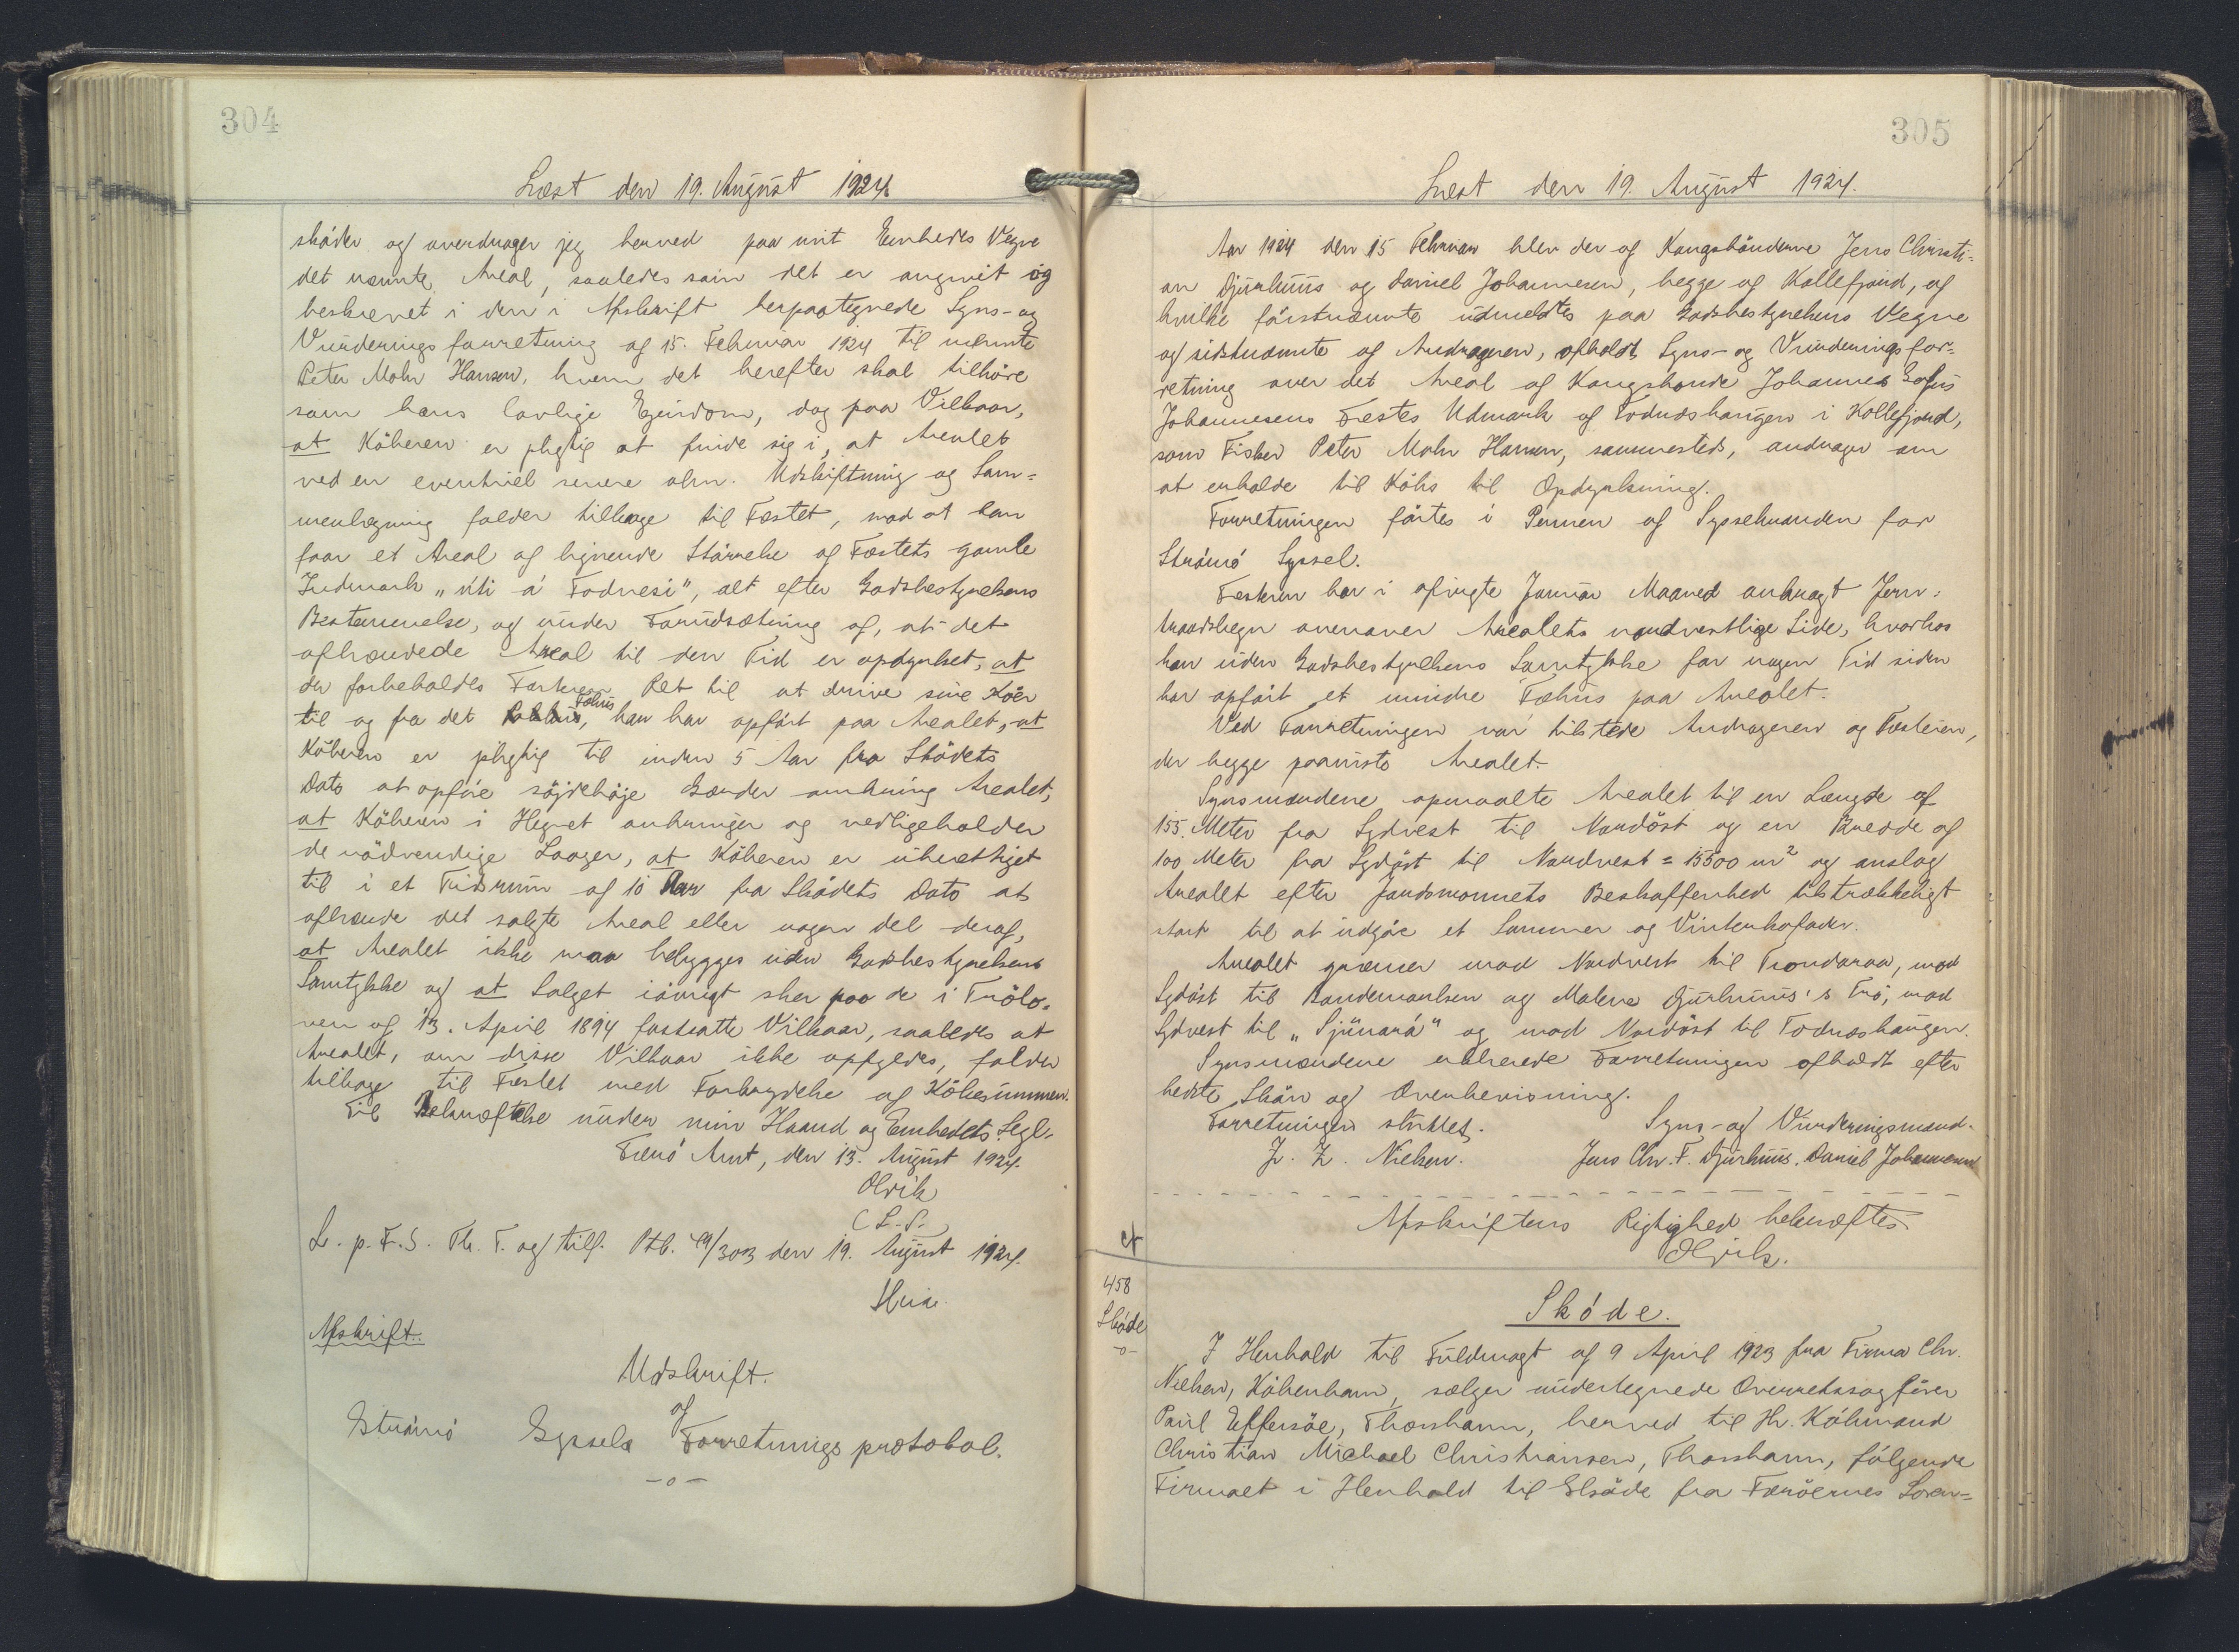 304
Læst den 19. August 1924
skøder og overdrager jeg herved paa mit Embeds Vegne
det nævnte Areal, saaledes som det er angivet og
beskrevet i den i Afskrift herpaategnede Syns- og
Vurderingsforretning af 15. Februar 1924 til nævnte
Peter Mohr Hansen, hvem det herefter skal tilhøre
som hans lovlige Ejendom, dog paa Vilkaar,
at Køberen er pligtig at finde sig i, at Arealet
ved en eventuel senere alm. Udskiftning og Sam-
menlægning falder tilbage til Fæstet, mod at han
faar et Areal af lignende Størrelse af Fæstets gamle
Indmark "úti á Fodnesi", alt efter Godsbestyrelsens
Bestemmelse, og under Forudsætning af, at det
afhændede Areal til den Tid er opdyrket, at
der forbeholdes Fæsteren Ret til at drive sine Køer
til og fra det Fæhus, han har opført paa Arealet, at
Køberen er pligtig til inden 5 Aar fra Skødets
Dato at opføre søjdehøje Gærder omkring Arealet,
at Køberen i Hegnet anbringer og vedligeholder
de nødvendige Laager, at Køberen er uberettiget
til i et Tidsrum af 10 Aar fra Skødets Dato at
afhænde det solgte Areal eller nogen del deraf,
at Arealet ikke maa bebygges uden Godsbestyrelsens
Samtykke og at Salget iøvrigt sker paa de i Trølo-
ven af 13. April 1894 fastsatte Vilkaar, saaledes at
Arealet, om disse Vilkaar ikke opfyldes, falder
tilbage til Fæstet med Fortabelse af Købesummen.
Til Bekræftelse under min Haand og Embedets Segl.
Færø Amt, den 13. August 1924.
Olrik
(L.S.)
L. p. F. S. Th. T. og tilf. Ptb. 19/303 den 19. August 1924.
Afskrift.
Udskrift.
af
Strømø Syssels Forretningsprotokol.
-o-
305
Læst den 19. August 1924.
Aar 1924 den 15 Februar blev der af Kongsbønderne Jens Christi-
an Djurhuus og Daniel Johannesen, begge af Kollefjord, af
hvilke førstnævnte udmeldtes paa Godsbestyrelsens Vegne
og sidstnævnte af Andrageren, afholdt Syns- og Vurderingsfor-
retning over det Areal af Kongsbonde Johannes Sofus
Johannesens Fæstes Udmark af Fodnæshaugen i Kollefjord,
som Fisker Peter Mohr Hansen, sammesteds, andrager om
at erholde til Købs til Opdyrkning.
Forretningen førtes i Pennen af Sysselmanden for
Strømø Syssel.
Fæsteren har i afvigte Januar Maaned anbragt Jern-
traadshegn ovenover Arealets nordvestlige Side, hvorhos
han uden Godsbestyrelsens Samtykke for nogen Tid siden
har opført et mindre Fæhus paa Arealet.
Ved Forretningen var tilstede Andrageren og Fæsteren,
der begge paaviste Arealet.
Synsmændene opmaalte Arealet til en Længde af
155. Meter fra Sydvest til Nordøst og en Bredde af
100 Meter fra Sydøst til Nordvest = 15500 m² og anslog
Arealet efter Jordsmonnets Beskaffenhed tilstrækkeligt
stort til at udgøre et Sommer og Vinterkofoder.
Arealet grænser mod Nordvest til Trondaraa, mod
Sydøst til Sandemanden og Malene Djurhuus's Trø, mod
Sydvest til "Sjúnará" og mod Nordøst til Fodnæshaugen.
Synsmændene erklærede Forretningen afholdt efter
bedste Skøn og Overbevisning.
Forretningen sluttet. Syns- og Vurderingsmænd.
J. Z. Nielsen. Jens Chr. F. Djurhuus. Daniel Johannesen
Afskriftens Rigtighed bekræftes
Olrik.
458
Skøde
-o-
Skøde.
I Henhold til Fuldmagt af 9 April 1923 fra Firma Chr.
Nielsen, København, sælger undertegnede Overretssagfører
Paul Effersøe, Thorshavn, herved til Hr. Købmand
Christian Michael Christiansen, Thorshavn, følgende
Firmaet i Henhold til Skøde fra Færøernes Soren-